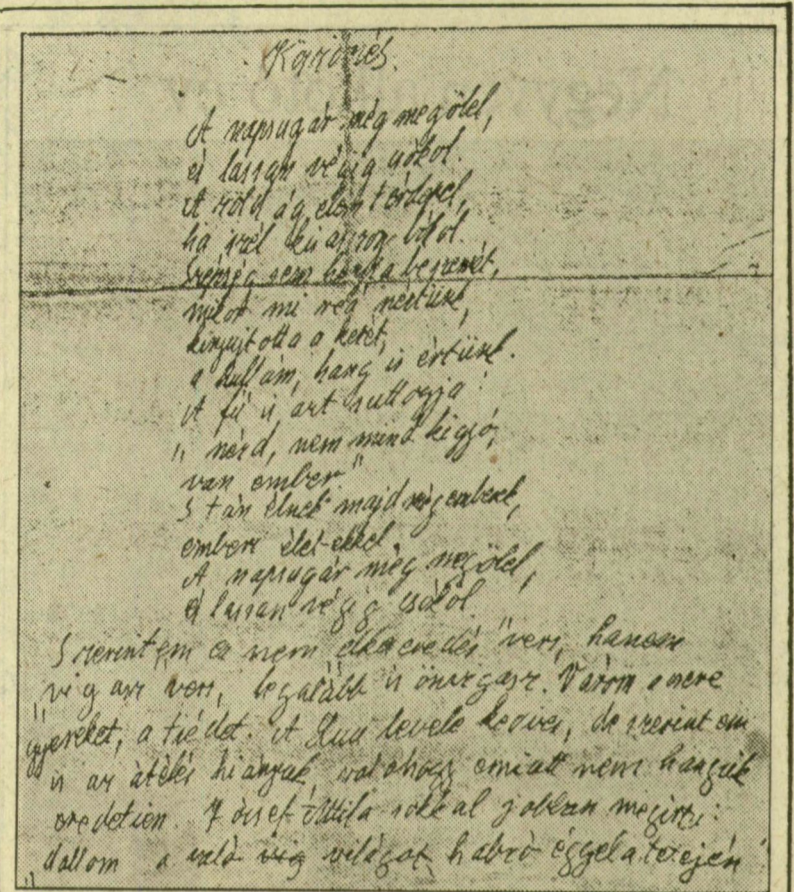 A napsugár még megölel,
és lassan végig csókol.
A zöld ág elém térdepel,
ha szél
Szépség sem
mikor mi rég
kinyujtotta a kezét,
a hullám, hang is értünk.
A fű is azt suttogja:
"nézd, nem mind kigyó,
van ember."
S tán élnek majd még emberek,
emberi élet-ekkel.
A napsugár még megölel,
és lassan végig csókol
Szerintem ez nem elkeseredés "vers, hanem
"vigasz" vers, legalább is önvigasz. Várom a
a tiédet. A levele kedves, de szerintem
is az átélés hiányzik, valahogy emiatt nem hangzik
eredetien. József Attila sokkal jobban megirta:
"dallom a való világot, habzó éggel a tetején"